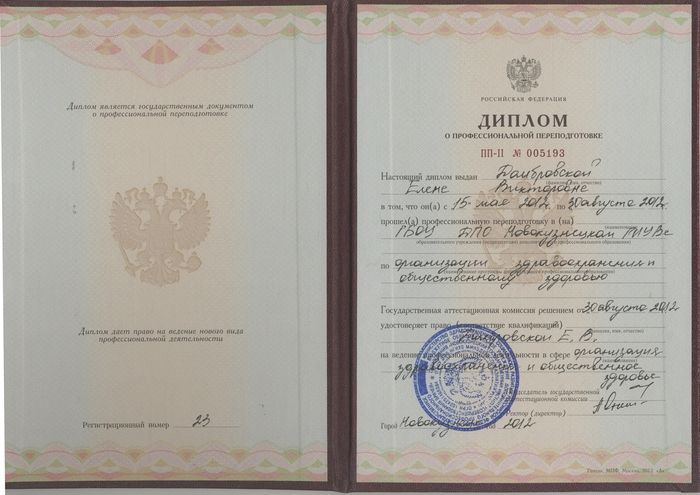 Диплом является государственным документом
о профессиональной переподготовке
Диплом дает право на ведение нового вида
профессиональной деятельности
Регистрационный номер 23
РОССИЙСКАЯ ФЕДЕРАЦИЯ
ДИПЛОМ
О ПРОФЕССИОНАЛЬНОЙ ПЕРЕПОДГОТОВКЕ
ПП-II № 005193
Настоящий диплом выдан Домбровской
(фамилия, имя, отчество)
Елене Викторовне
в том, что он(а) с 15 мая 2012 по 30 августа 2012
прошел(а) профессиональную переподготовку в (на)
(наименование)
ГБОУ ДПО Новокузнецкий ГИУВе
образовательного учреждения (подразделения) дополнительного профессионального образования)
по организации здравоохранения и
общественному здоровью
Государственная аттестационная комиссия решением от 30 августа 2012
удостоверяет право (соответствие квалификации)
(фамилия, имя, отчество)
Домбровской Е. В.
на ведение профессиональной деятельности в сфере организация
здравоохранения и общественное
здоровье
Председатель государственной
аттестационной комиссии
Ректор (директор)
Город Новокузнецк год 2012
Гознак, МПФ, Москва, «А».